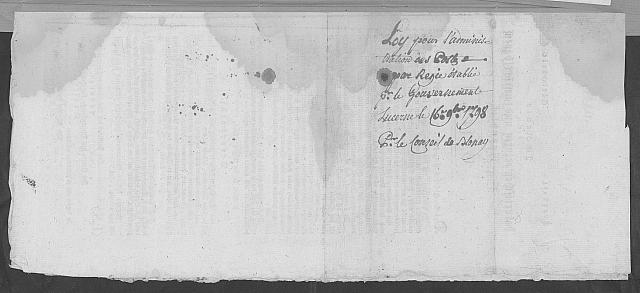 Loy pour l'adminis
tration des Postes
par Regie établie
pr. le Gouvernement
Lucerne le 16e 9bre 1798
Pr. le Conseil de Blonay